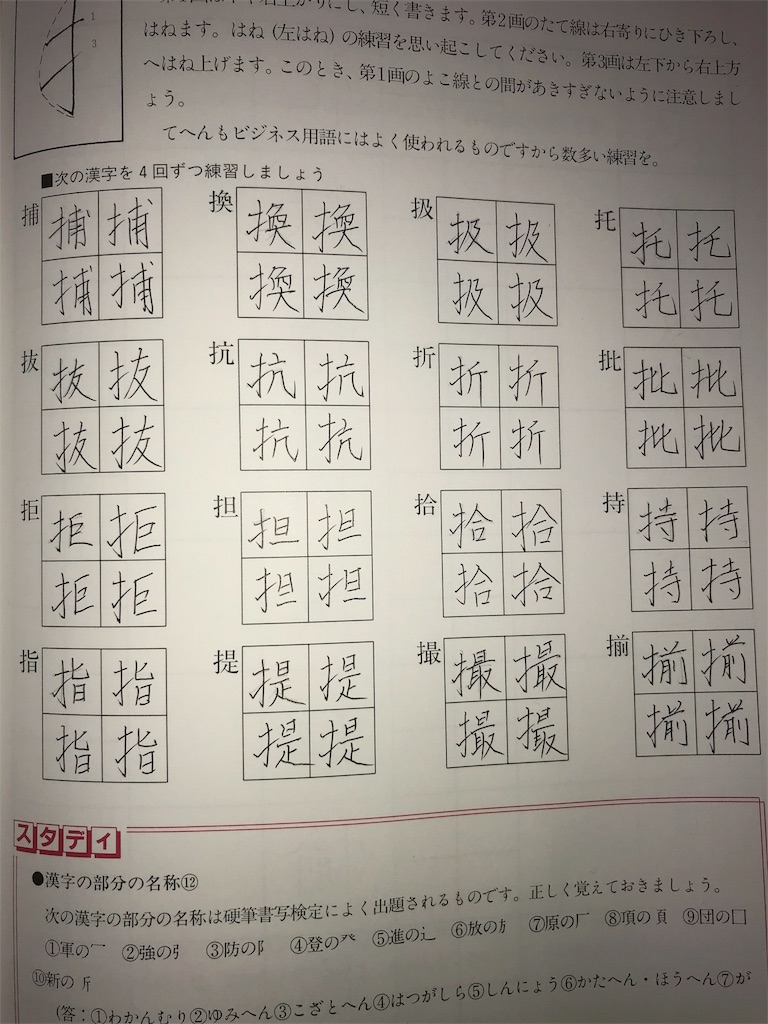 1
3
短く書きます。第2画のたて線は右寄りにひき下ろし、
はねます。はね(左はね)の練習を思い起こしてください。第3画は左下から右上方
へはね上げます。このとき、第1画のよこ線との間があきすぎないように注意しまし
ょう。
てへんもビジネス用語にはよく使われるものですから数多い練習を。
■次の漢字を4回ずつ練習しましょう
捕 捕 捕 換 換 換 扱 扱 扱 托 托 托
捕 捕 換 換 扱 扱 托 托
抜 抜 抜 抗 抗 抗 折 折 折 批 批 批
抜 抜 抗 抗 折 折 批 批
拒 拒 拒 担 担 担 拾 拾 拾 持 持 持
拒 拒 担 担 拾 拾 持 持
指 指 指 提 提 提 撮 撮 撮 揃 揃 揃
指 指 提 提 撮 撮 揃 揃
スタディ
●漢字の部分の名称⑫
次の漢字の部分の名称は硬筆書写検定によく出題されるものです。正しく覚えておきましょう。
①軍の冖 ②強の弓 ③防の阝 ④登の癶 ⑤進の辶 ⑥放の方 ⑦原の厂 ⑧項の頁 ⑨団の囗
⑩新の斤
(答:①わかんむり②ゆみへん③こざとへん④はつがしら⑤しんにょう⑥かたへん・ほうへん⑦が